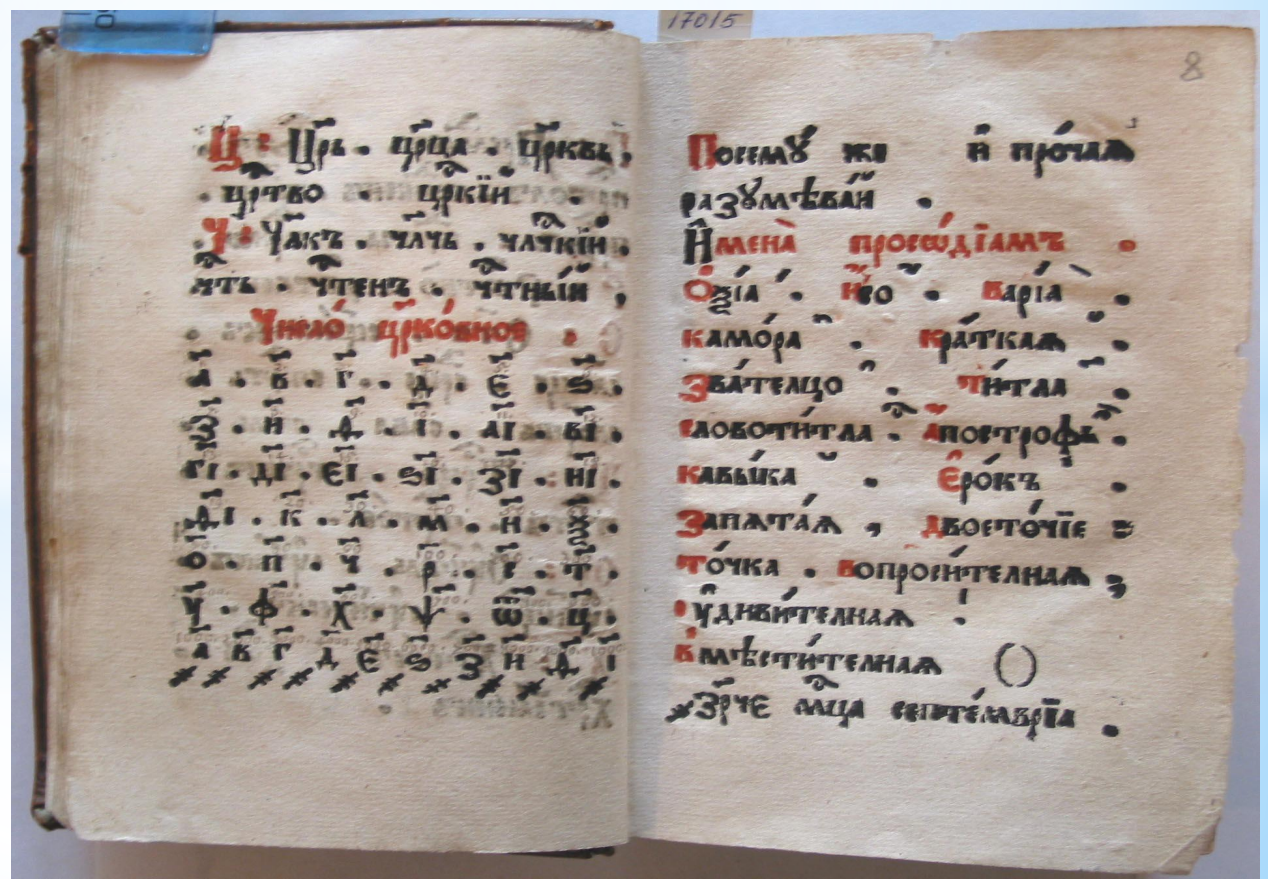 17015
8
Ц: Цр҃ь . цр҃ца . цр҃ковь ,
. цр҃тво . цр҃кїи .
Ч: Чл҃къ . чл҃чь . чл҃чкїи .
чт҃ь . чт҃енъ . чт҃ный ,
Число̀ цр҃ко́вное .
а҃ . в҃ . г҃ . д҃ . є҃ . ѕ҃ .
и҃ . ѳ҃ . і҃ . аі҃ . ві҃ .
гі҃ . ді҃ . єі҃ . ѕі҃ . зі҃ . иі҃ .
ѳі҃ . к҃ . л҃ . м҃ . н҃ . ѯ҃ .
о҃ . п҃ . ч҃ . р҃ . с҃ . т҃ .
у҃ . ф҃ . х҃ . ѱ҃ . ѿ҃ . ц҃ .
҂а҃ ҂в҃ ҂г҃ ҂д҃ ҂є҃ ҂ѕ҃ ҂з҃ ҂и҃ ҂ѳ҃ ҂і҃
Посемꙋ́ же и҆ про́чаѧ
разꙋмѣва́й .
И҆мена̀ просѡ́дїамъ .
О҆ѯі́а ́ . И҆со ҆ . Варі́а ̀ .
камо́ра ̑ . кра́ткаѧ ̆ .
Зва́телцо ҆ . ти́тла ҃ .
словоти́тла . а҆построфъ .
кавы́ка . Е҆ро́къ .
Запѧта́ѧ , двоето́чїе :
то́чка . вопроси́телнаѧ ;
ѹ҆диви́телнаѧ !
вмѣсти́телнаѧ ()
҂зр҃че мц҃а септе́мврїа .